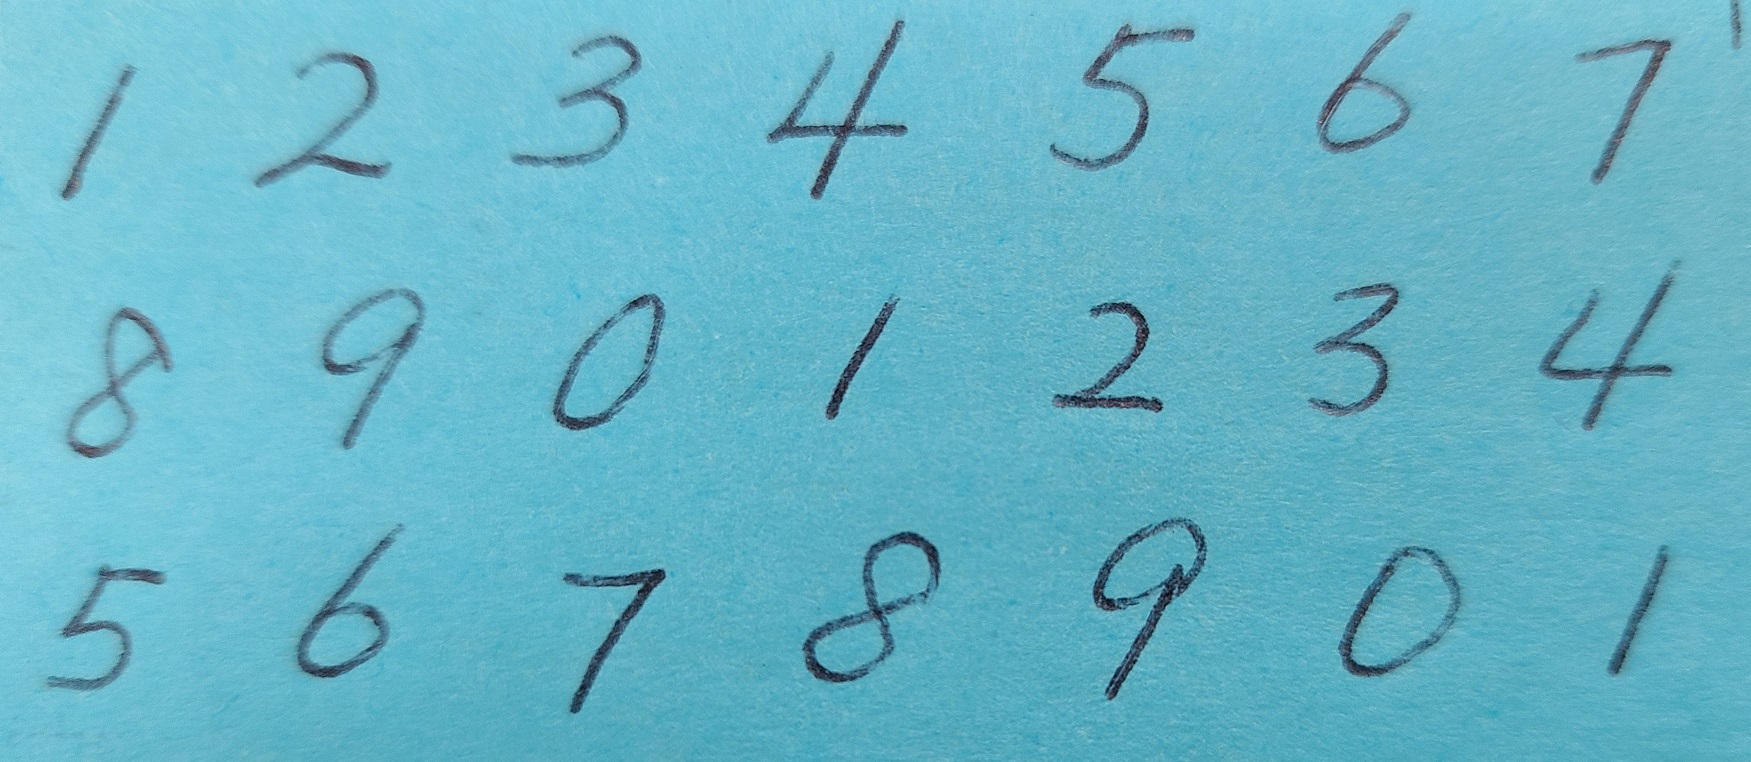 1 2 3 4 5 6 7
8 9 0 1 2 3 4
5 6 7 8 9 0 1